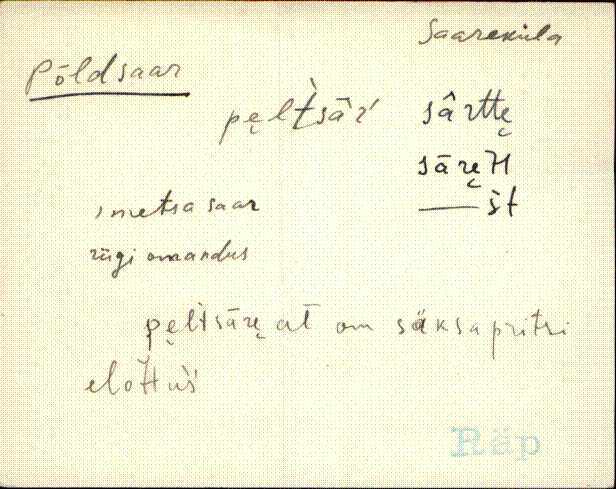 Saareküla
Põldsaar
pe̬lt̀sār' sấrtte̬
sāre̬H
— št
, metsa saar
riigi omandus
pe̬ltsāre̬ at om säksa pritsi
eloHuš
Räp